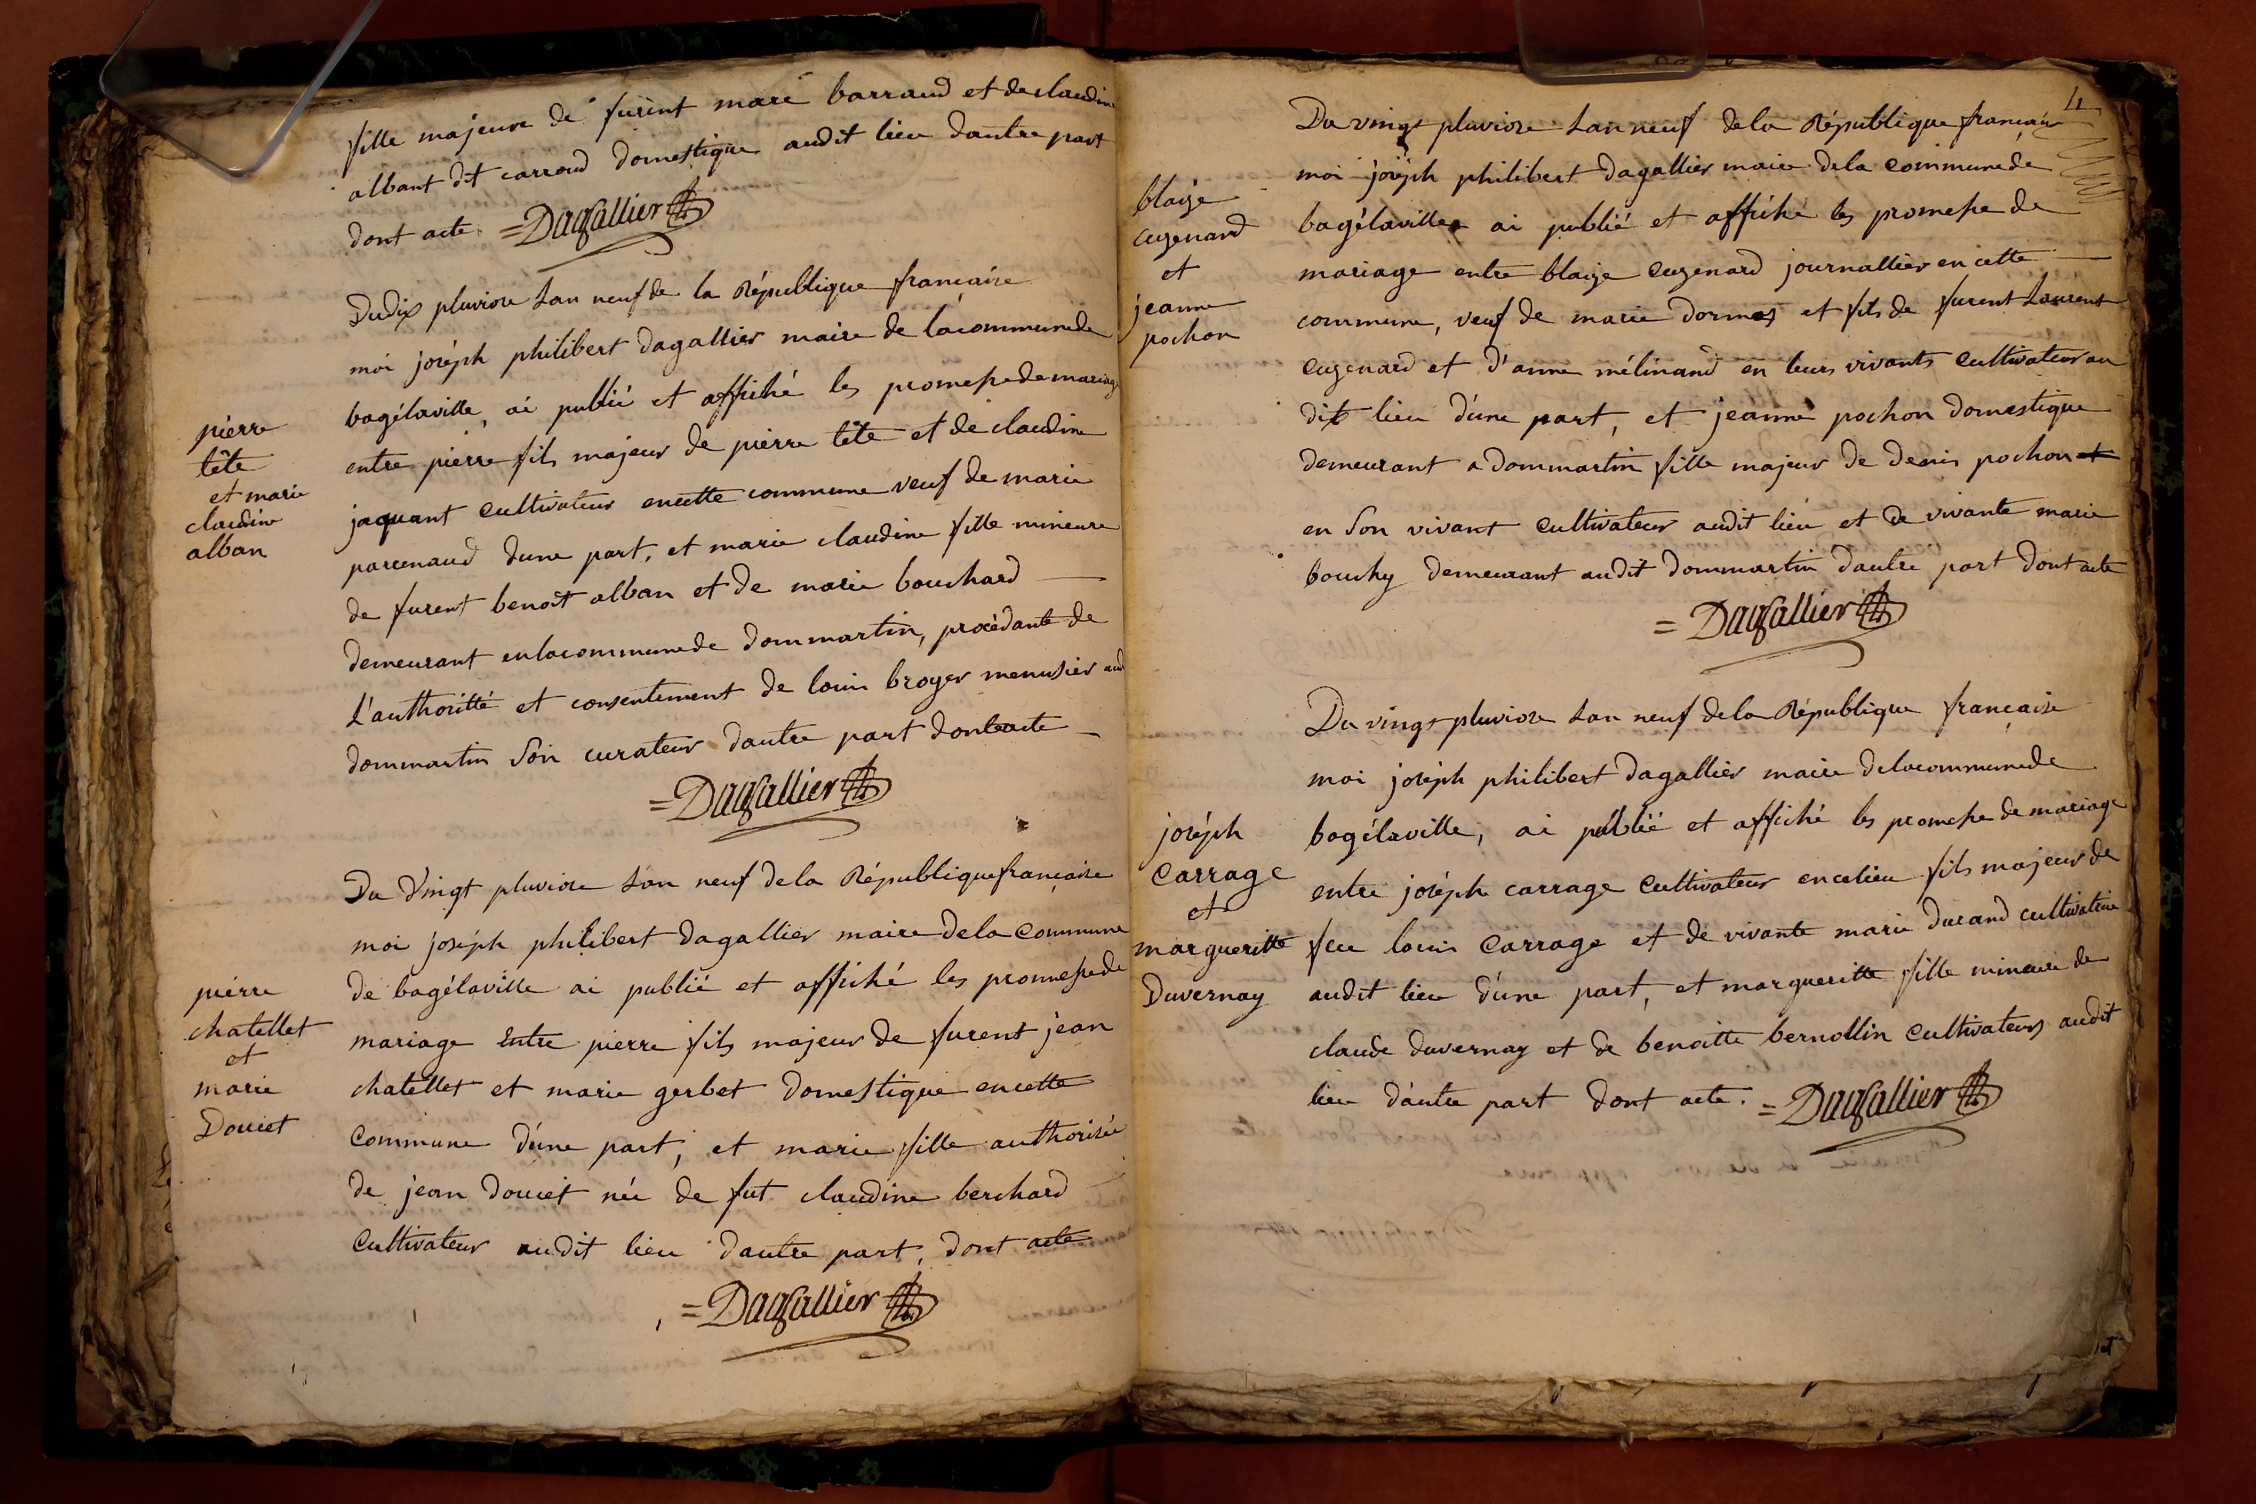 fille majeure de furent marc barraud et de claudine
albant dit carroud domestique audit lieu dautre part
dont acte = Dagallier
Du dix pluviose lan neuf de la République française
moi joséph philibert dagallier maire de lacommunede
bagélaville, ai publié et affiché les promesse de mariage
pierre
tête
et marie
claudine
alban
entre pierre fils majeur de pierre tête et de claudine
jaquant cultivateur encette commune veuf de marie
parcenaud dune part, et marie claudine fille mineure
de furent benoît alban et de marie bouchard
demeurant enlacommunede dommartin, procédante de
L'authoritté et consentement de louis broyer menusier aud
dommartin Son curateur dautre part dont acte
= Dagallier
Du Vingt pluviose Lan neuf dela République française
moi joséph philibert dagallier maire dela Commune
pierre
chatellet
et
marie
Doucet
de bagélaville ai publié et affiché les promesse de
mariage Entre pierre fils majeur de furent jean
chatellet et marie gerbet domestique encette
Commune d'une part, et marie fille authorisée
de jean doucet née de fut claudine berchard
Cultivateur audit lieu dautre part, dont acte
= Dagallier
4
Du vingt pluviose Lan neuf dela République française
moi joséph philibert dagallier maire dela commune de
blaize
cugenard
et
jeanne
pochon
bagélaville ai publié et affiché les promesse de
mariage entre blaize cugenard journallier en cette
commune, veuf de marie dormes et fils de furent Laurent
cugenard et d'anne mélinand en leurs vivants cultivateur au
dit lieu d'une part, et jeanne pochon domestique
demeurant a dommartin fille majeur de denis pochon et
en Son vivant cultivateur audit lieu et de vivante marie
bouchy demeurant audit dommartin dautre part dont acte
= Dagallier
Du vingt pluviose Lan neuf dela République française
moi joséph philibert dagallier maire delacommunede
joséph
carrage
et
margueritte
Duvernay
bagélaville, ai publié et affiché les promesse de mariage
entre joséph carrage cultivateur encelieu fils majeur de
feu louis carrage et de vivante marie durand cultivatrice
audit lieu d'une part, et margueritte fille mineure de
claude duvernay et de benoitte bernollin cultivateurs audit
lieu d'autre part dont acte. = Dagallier